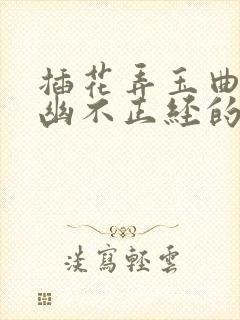 插花弄玉曲
幽不正经的
淡寫輕雲